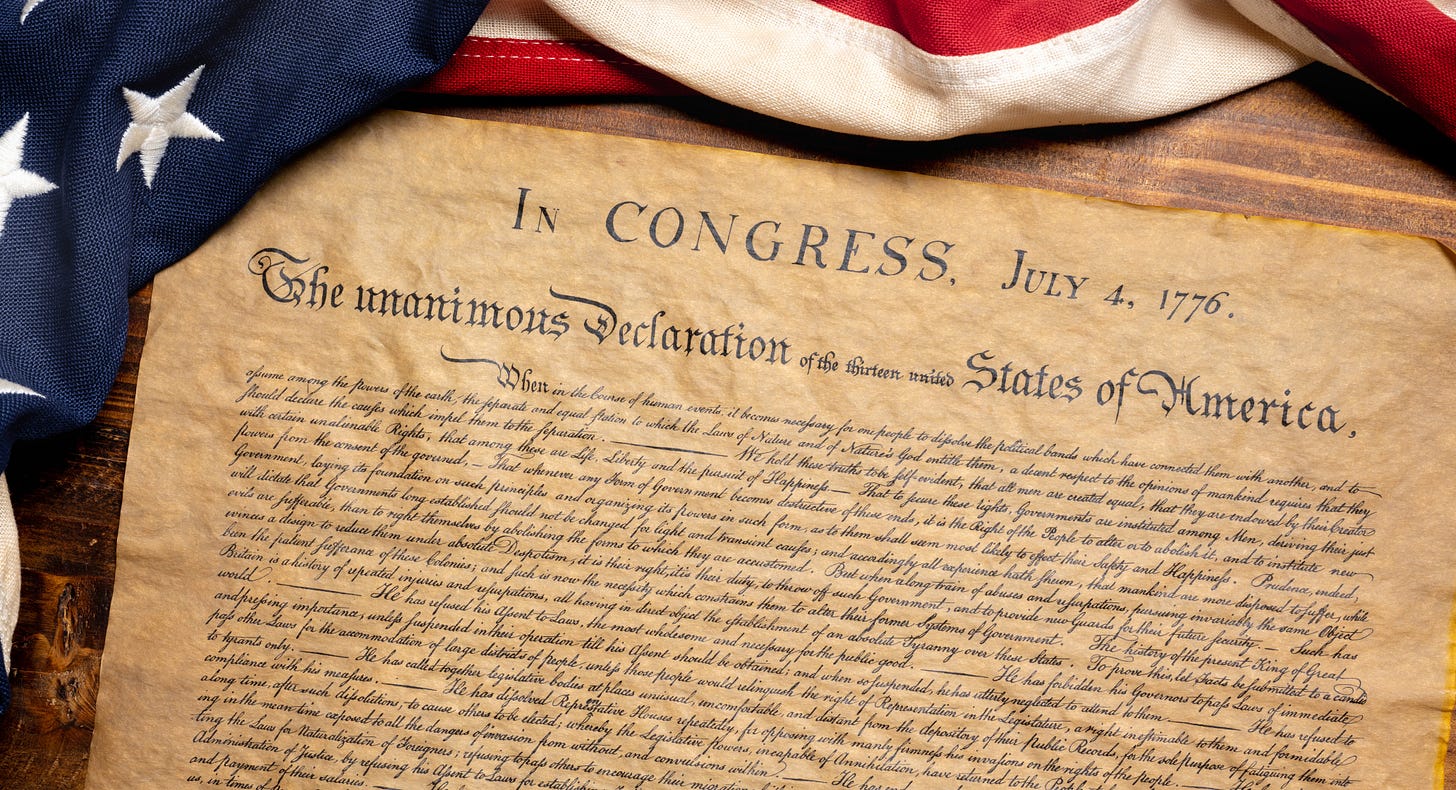 IN CONGRESS, JULY 4, 1776.
The unanimous Declaration of the thirteen united States of America,
When in the Course of human events, it becomes necessary for one people to dissolve the political bands which have connected them with another, and to
assume among the powers of the earth, the separate and equal station to which the Laws of Nature and of Nature's God entitle them, a decent respect to the opinions of mankind requires that they
should declare the causes which impel them to the separation. — We hold these truths to be self-evident, that all men are created equal, that they are endowed by their Creator
with certain unalienable Rights, that among these are Life, Liberty and the pursuit of Happiness.— That to secure these rights, Governments are instituted among Men, deriving their just
powers from the consent of the governed, — That whenever any Form of Government becomes destructive of these ends, it is the Right of the People to alter or to abolish it, and to institute new
Government, laying its foundation on such principles and organizing its powers in such form, as to them shall seem most likely to effect their Safety and Happiness. Prudence, indeed,
will dictate that Governments long established should not be changed for light and transient causes; and accordingly all experience hath shewn, that mankind are more disposed to suffer, while
evils are sufferable, than to right themselves by abolishing the forms to which they are accustomed. But when a long train of abuses and usurpations, pursuing invariably the same Object
evinces a design to reduce them under absolute Despotism, it is their right, it is their duty, to throw off such Government, and to provide new Guards for their future security. — Such has
been the patient sufferance of these Colonies; and such is now the necessity which constrains them to alter their former Systems of Government. The history of the present King of Great
Britain is a history of repeated injuries and usurpations, all having in direct object the establishment of an absolute Tyranny over these States. To prove this, let Facts be submitted to a candid
world. — He has refused his Assent to Laws, the most wholesome and necessary for the public good. — He has forbidden his Governors to pass Laws of immediate
and pressing importance, unless suspended in their operation till his Assent should be obtained; and when so suspended, he has utterly neglected to attend to them. — He has refused to
pass other Laws for the accommodation of large districts of people, unless those people would relinquish the right of Representation in the Legislature, a right inestimable to them and formidable
to tyrants only. — He has called together legislative bodies at places unusual, uncomfortable, and distant from the depository of their Public Records, for the sole purpose of fatiguing them into
compliance with his measures. — He has dissolved Representative Houses repeatedly, for opposing with manly firmness his invasions on the rights of the people.
along time, after such dissolutions, to cause others to be elected; whereby the Legislative powers, incapable of Annihilation, have returned to the People
ing in the mean time exposed to all the dangers of invasion from without, and convulsions within. — He has
ting the Laws for Naturalization of Foreigners; refusing to pass others to encourage their
Administration of Justice, by refusing his Assent to Laws for
and payment of their salaries. —
us, in times of